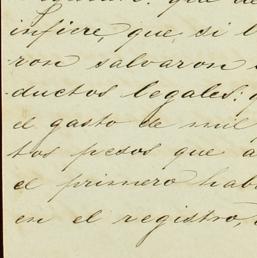 que de
infiere, que, si l
ron salvaron
ductos legales; q
el gasto de mil
tos pesos que a
el primero hab
en el registro,